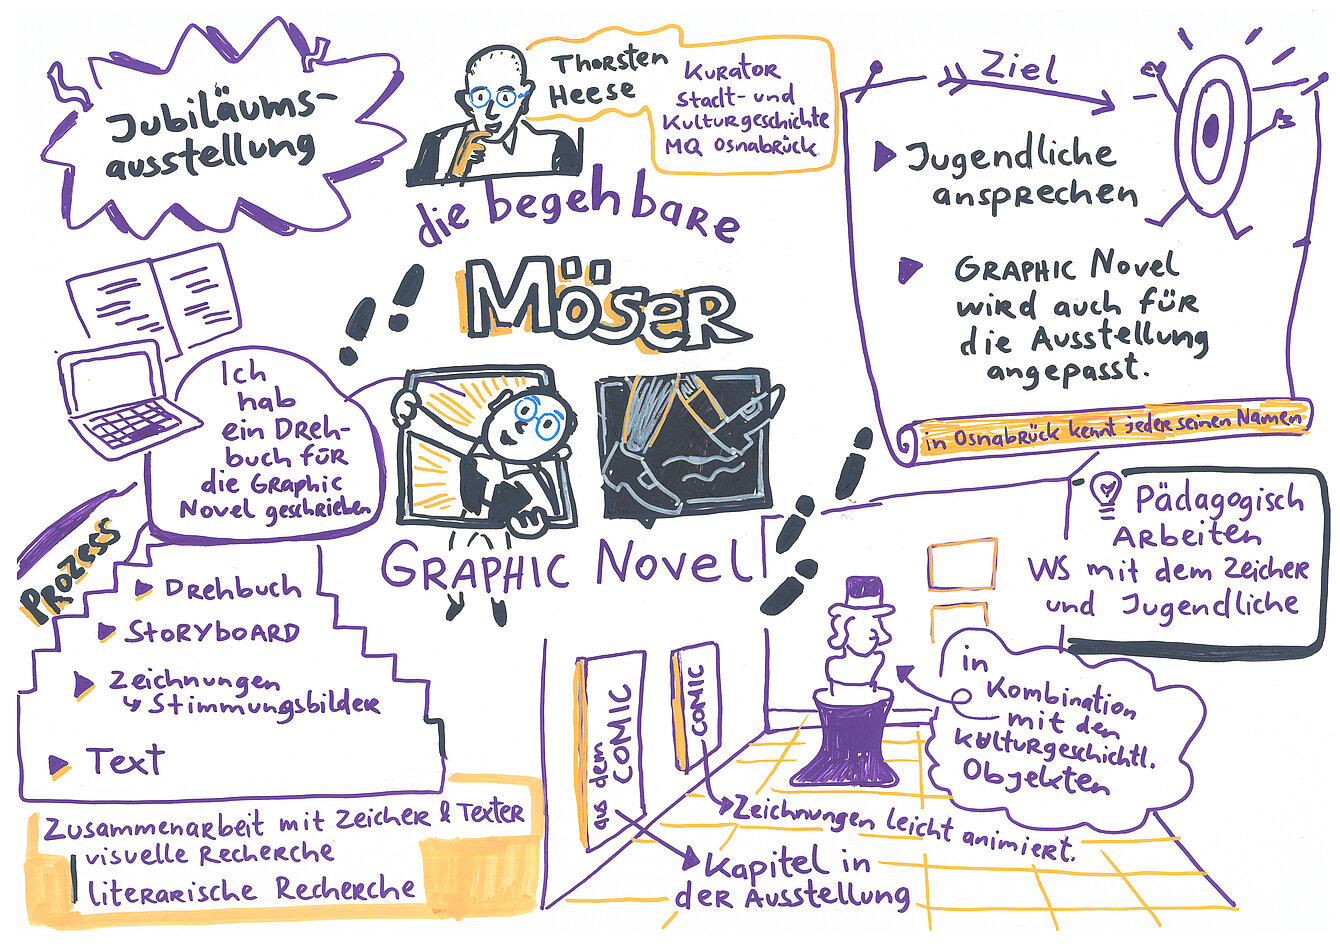 Jubiläums-
ausstellung
Thorsten
Heese
Kurator
Stadt- und
Kulturgeschichte
MQ Osnabrück
die begehbare
Möser
Graphic Novel
Ziel
Jugendliche
ansprechen
Graphic Novel
wird auch für
die Ausstellung
angepasst.
in Osnabrück kennt jeder seinen Namen
Ich
hab
ein Dreh-
buch für
die Graphic
Novel geschrieben
Prozess
Drehbuch
Storyboard
Zeichnungen
↳ Stimmungsbilder
Text
Zusammenarbeit mit Zeicher & Texter
visuelle Recherche
literarische Recherche
Pädagogisch
Arbeiten
WS mit dem Zeicher
und Jugendliche
in
Kombination
mit den
kulturgeschichtl.
Objekten
aus dem
COMIC
COMIC
Zeichnungen leicht animiert.
Kapitel in
der Ausstellung